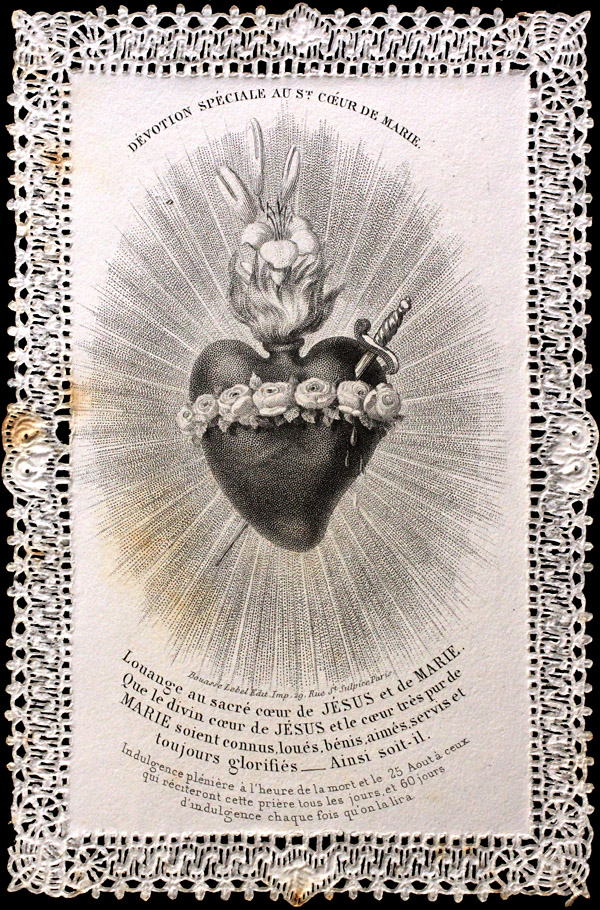 DÉVOTION SPÉCIALE AU ST CŒUR DE MARIE.
Bouasse Lebel Édit. Imp. 29, Rue St Sulpice Paris
Louange au sacré cœur de JÉSUS et de MARIE.
Que le divin cœur de JÉSUS et le cœur très pur de
MARIE soient connus, loués, bénis, aimés, servis et
toujours glorifiés — Ainsi soit-il.
Indulgence plénière à l'heure de la mort et le 25 Août à ceux
qui réciteront cette prière tous les jours, et 60 jours
d'indulgence chaque fois qu'on la lira.